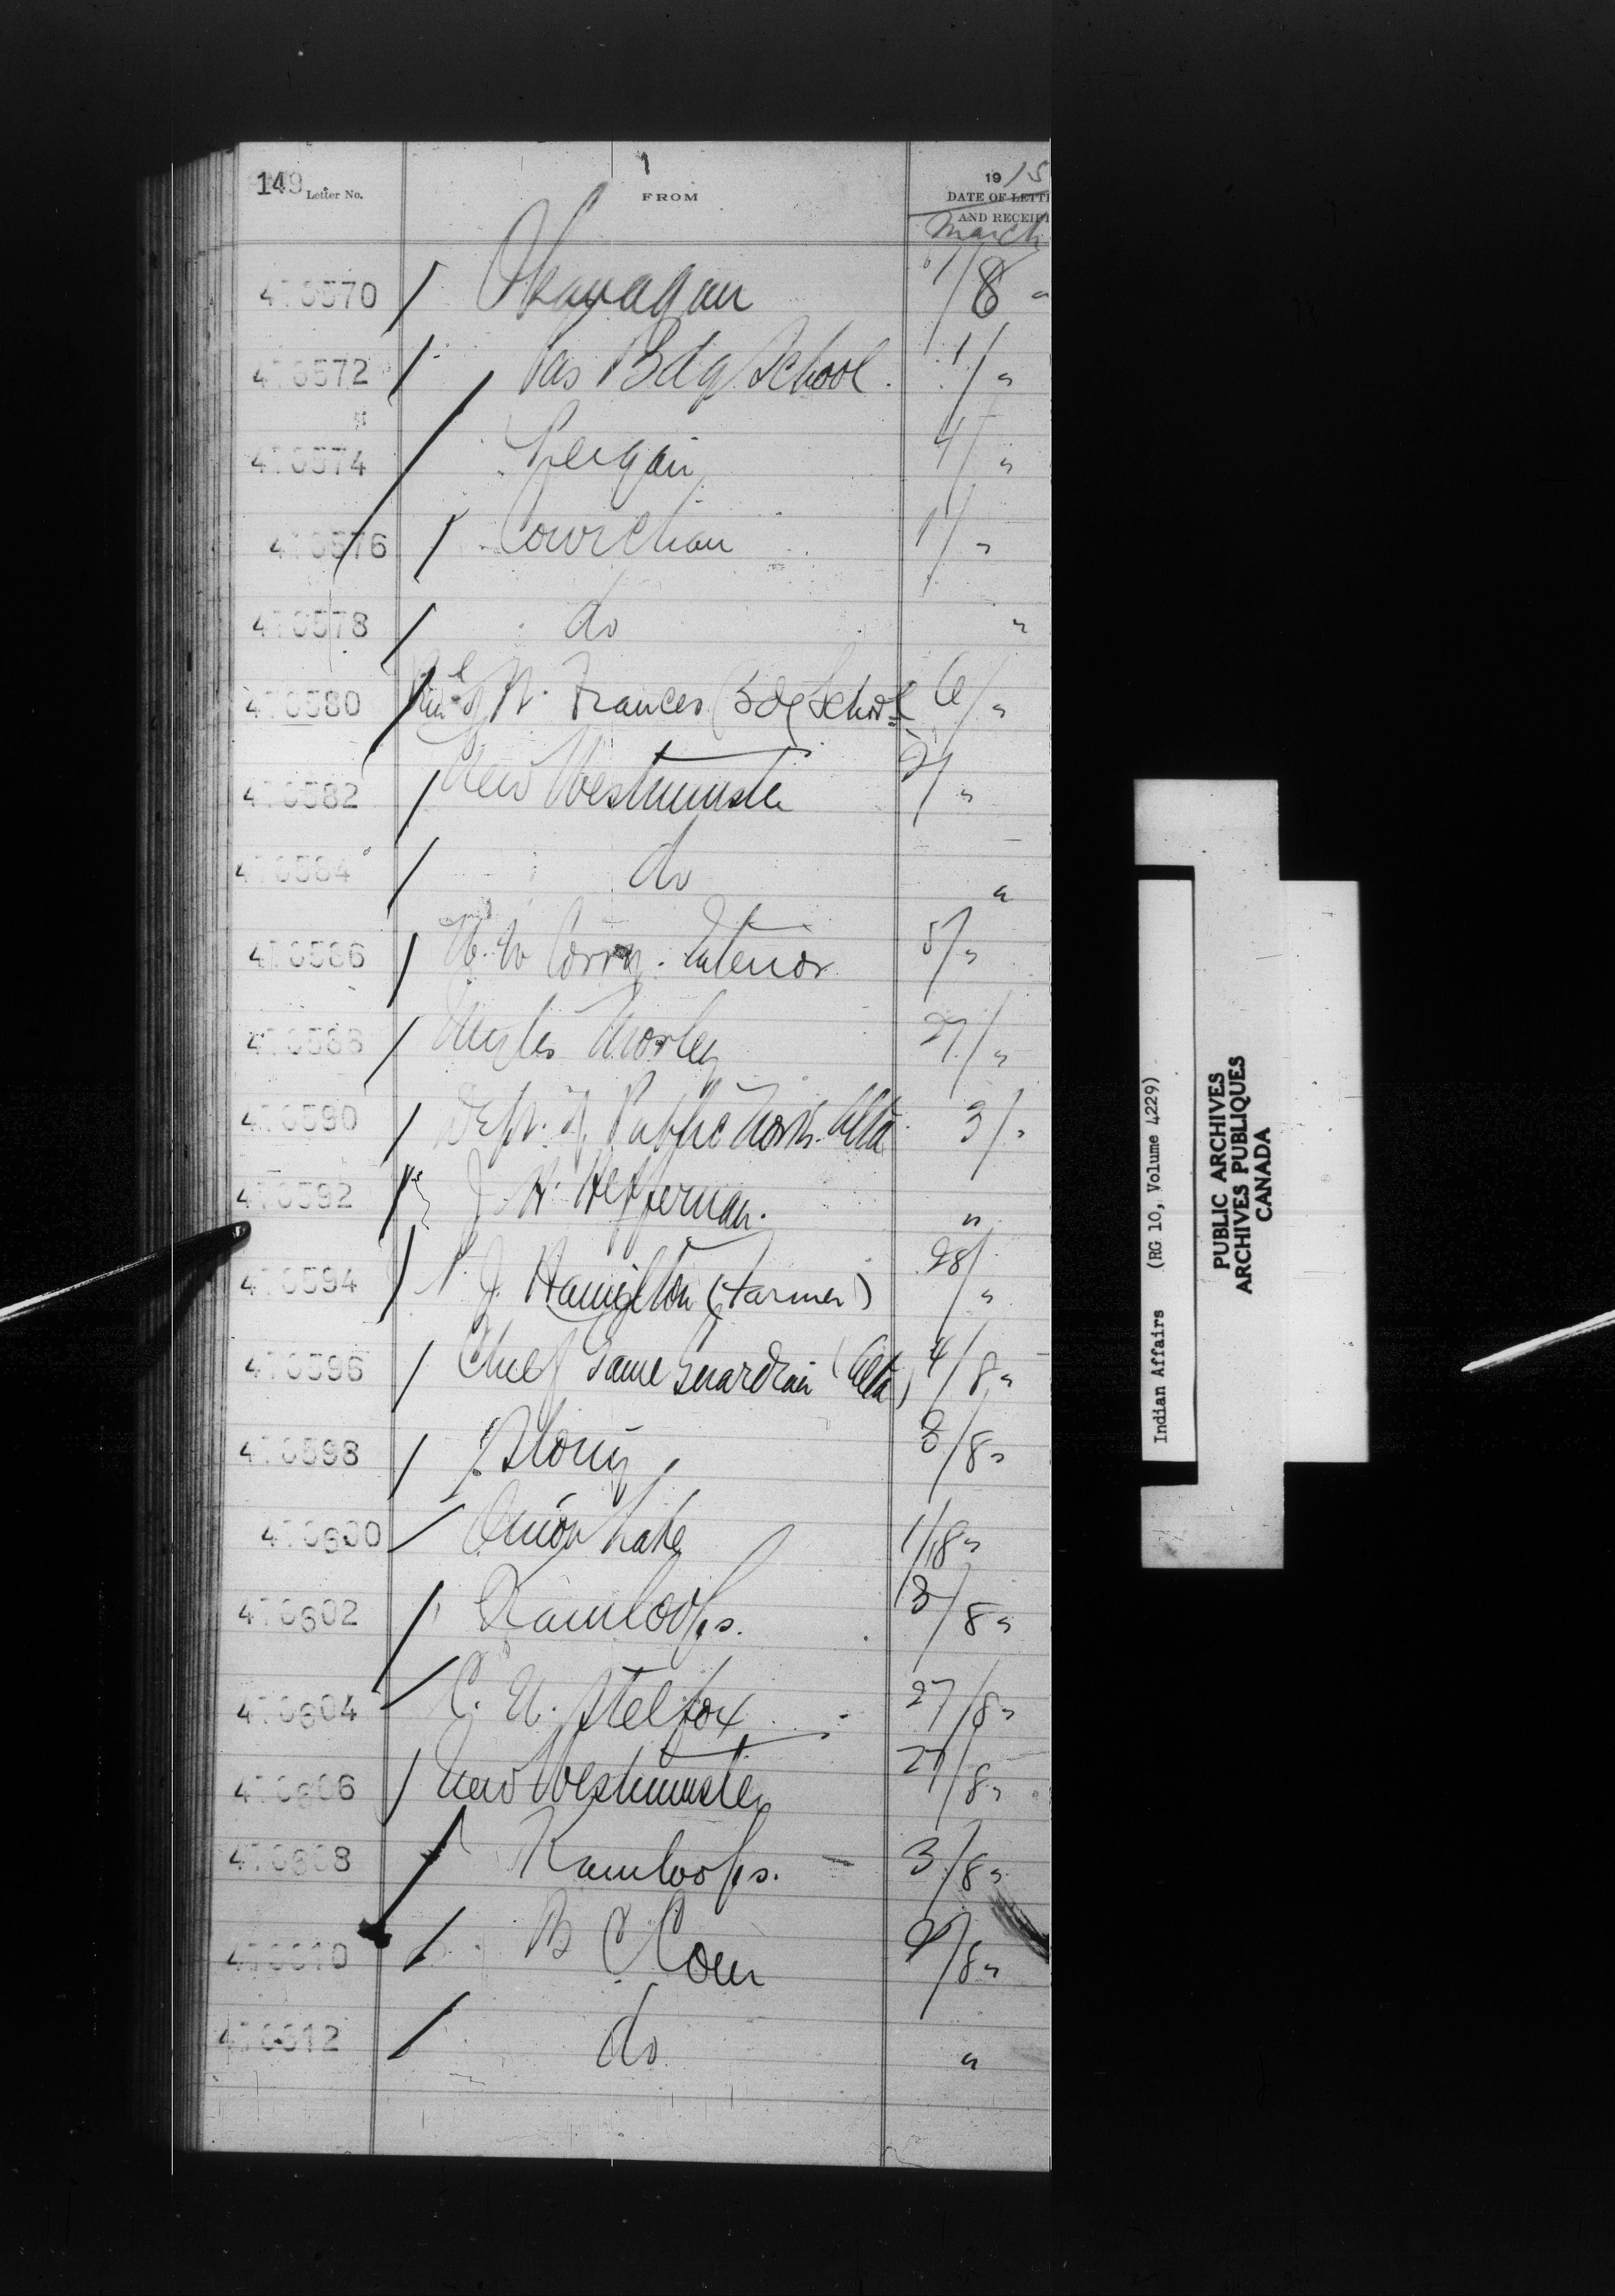 149 Letter No. FROM 1915 DATE OF LETTE AND RECEIPT
March
470570 Okanagan 1/8 "
470572 Pas Bdg School. 1/ "
470574 4/ "
470576 Cowichan 1/ "
470578 do "
470580 Frances Bdg School 6/ "
470582 New Westminster 2/ "
470584 do "
470586 W. W. Cory. Interior 5/ "
470588 Morley 27/ "
470590 Dept. of Public Works. Alta 3/ "
470592 J. H. Heffernan. "
470594 J. Hamilton (Farmer) 28/ "
470596 Chief Game Guardian (Alta) 4/8 "
470598 Stony 3/8 "
470600 Onion Lake 1/8 "
470602 Kamloops. 3/8 "
470604 Stelfox 27/8 "
470606 New Westminster 27/8 "
470608 Kamloops. 3/8 "
470610 B C Com /8 "
470612 do "
Indian Affairs (RG 10, Volume 4229)
PUBLIC ARCHIVES
ARCHIVES PUBLIQUES
CANADA